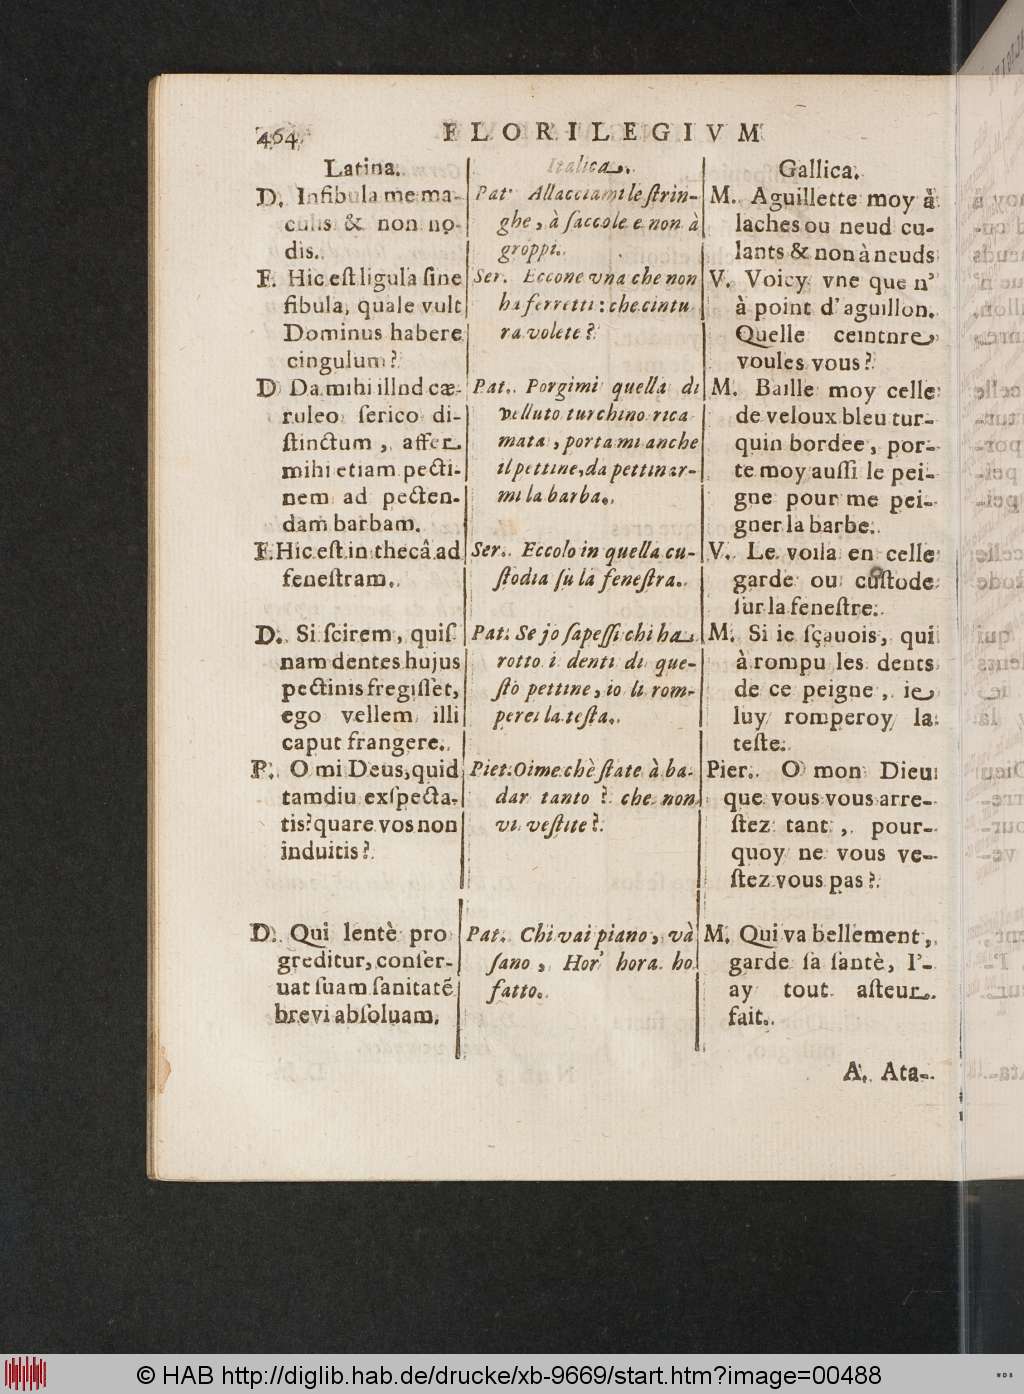 464
FLORILEGIVM
Latina.
D. Infibula me ma-
culis & non no-
dis.
F. Hic eſt ligula ſine
fibula, quale vult
Dominus habere
cingulum?
D Da mihi illud cæ-
ruleo ſerico di-
ſtinctum, affer
mihi etiam pecti-
nem ad pecten-
dam barbam.
F. Hic eſt in thecâ ad
feneſtram.
D. Si ſcirem, quiſ
nam dentes hujus
pectinis fregiſſet,
ego vellem illi
caput frangere.
P. O mi Deus, quid
tamdiu exſpecta-
tis? quare vos non
induitis?
D. Qui lentè pro
greditur, conſer-
uat ſuam ſanitatē
brevi abſoluam.
Italica.
Pat. Allacciami le ſtrin-
ghe, à ſaccole e non à
groppi.
Ser. Eccone vna che non
ha ferretti: che cintu
ra volete?
Pat. Porgimi quella di
velluto turchino rica
mata, porta mi anche
il pettine, da pettinar-
mi la barba.
Ser. Eccolo in quella cu-
ſtodia ſu la feneſtra.
Pat. Se jo ſapeſſi chi ha
rotto i denti di que-
ſto pettine, io li rom-
perei la teſta.
Piet. Oime chè ſtate à ba-
dar tanto? che non
vi veſtite?
Pat. Chi vai piano, và
ſano, Hor' hora ho
fatto.
Gallica.
M. Aguillette moy à
laches ou neud cu-
lants & non à neuds
V. Voicy vne que n'
à point d'aguillon.
Quelle ceintnre
voules vous?
M. Baille moy celle
de veloux bleu tur-
quin bordee, por-
te moy auſſi le pei-
gne pour me pei-
gner la barbe.
V. Le voila en celle
garde ou cuſtode
ſur la feneſtre.
M. Si ie ſçauois, qui
à rompu les dents
de ce peigne, ie
luy romperoy la
teſte.
Pier. O mon Dieu
que vous vous arre-
ſtez tant, pour-
quoy ne vous ve-
ſtez vous pas?
M. Qui va bellement,
garde ſa ſantè, I'-
ay tout aſteur
fait.
A. Ata-
© HAB http://diglib.hab.de/drucke/xb-9669/start.htm?image=00488